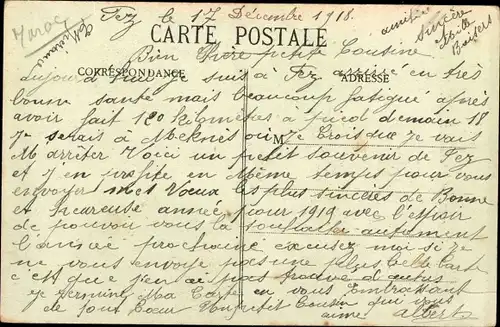 Maroc
Fez le 17 Décembre 1918.
amitié
sincère
Mille
Baisers
CARTE POSTALE
Bien Chère petite Cousine
CORRESPONDANCE
ADRESSE
aujourd'hui je suis à Fez arrivé en très
bonne santé mais beaucoup fatigué après
avoir fait 120 kilomètres à pied demain 18
Je serais à Meknès ou Je Crois que je vais
M
M arrêter Voici un petit souvenir de Fez
et J en profite en Même temps pour vous
envoyer mes Vœux les plus sincères de Bonne
et heureuse année pour 1919 avec l'espoir
de pouvoir vous la souhaiter autrement
l'année prochaine excusez moi si je
ne vous envoye pas une plus belle Carte
c'est que j'en ai pas trouvé d'autres
Je termine Ma Carte en vous Embrassant
de tout Cœur Votre petit Cousin qui vous
aime Albert